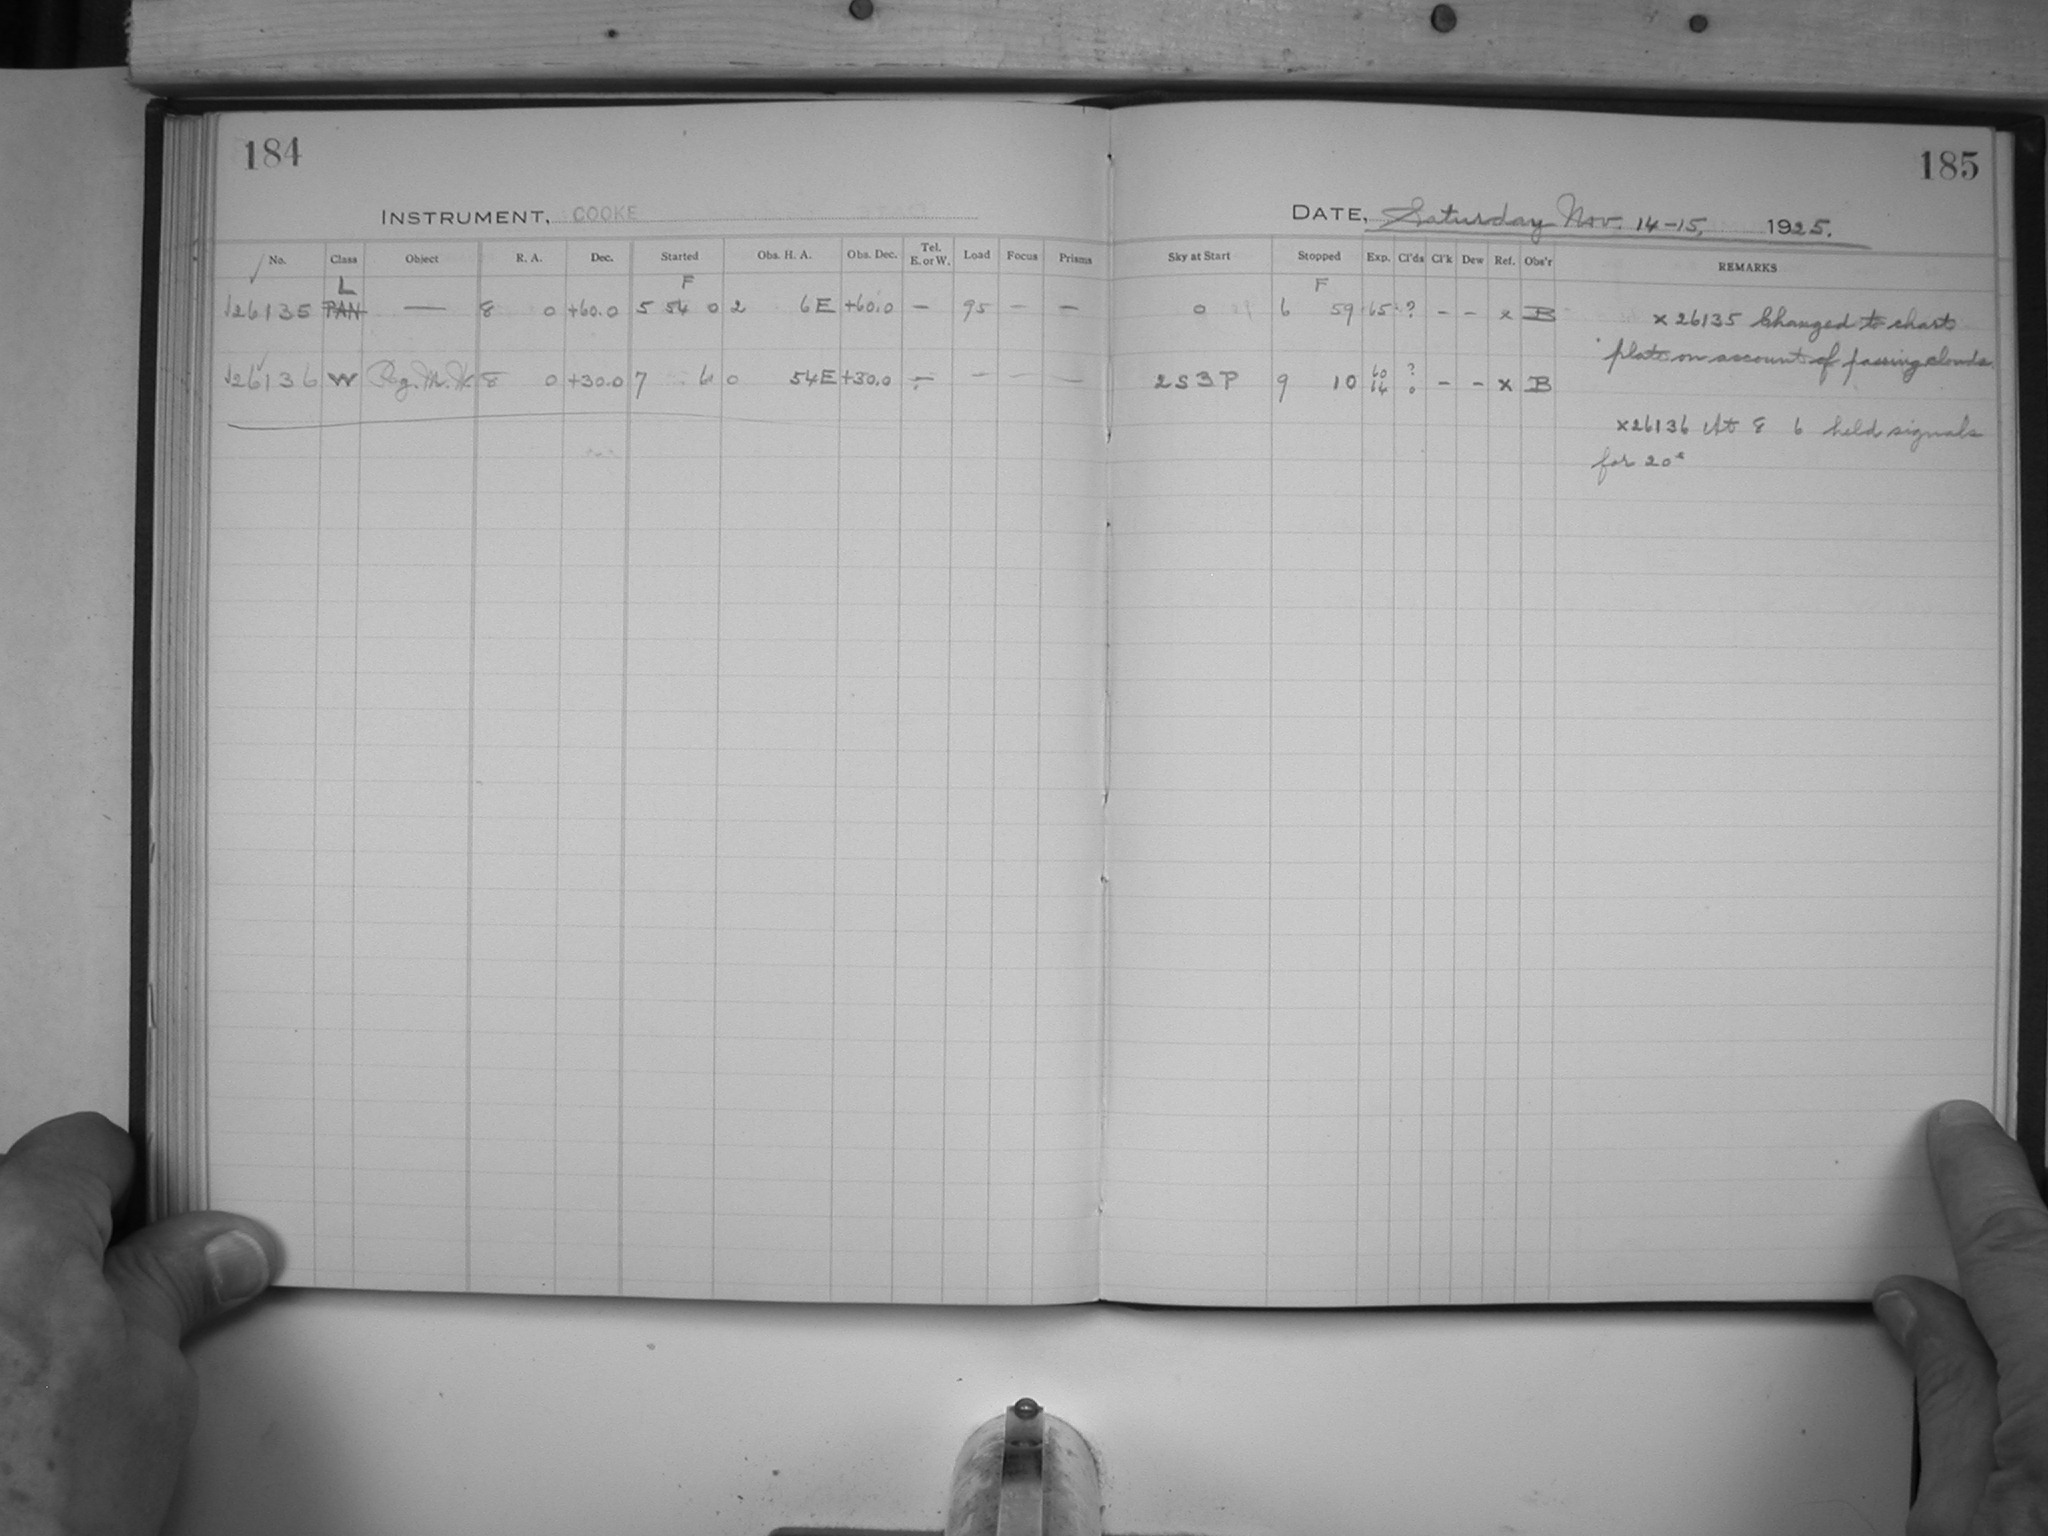 184
185
INSTRUMENT, COOKE
DATE, Saturday Nov. 14-15, 1925.
No. Class Object R. A. Dec. Started Obs. H. A. Obs. Dec. Tel. E. or W. Load Focus Prisms Sky at Start Stopped Exp. Cl'ds Cl'k Dew Ref. Obs'r REMARKS
L F F
√26135 PAN — 8 0 +60.0 5 54 0 2 6E +60.0 — 95 — — 0 6 59 65 ? – – x B x 26135 Changed to chart
plate on account of passing clouds.
√26136 W Rg. M. W. 8 0 +30.0 7 6 0 54E +30.0 – – – — 2S3P 9 10 60 ? – – x B
64 0
x26136 At 8 6 held signals
for 20s